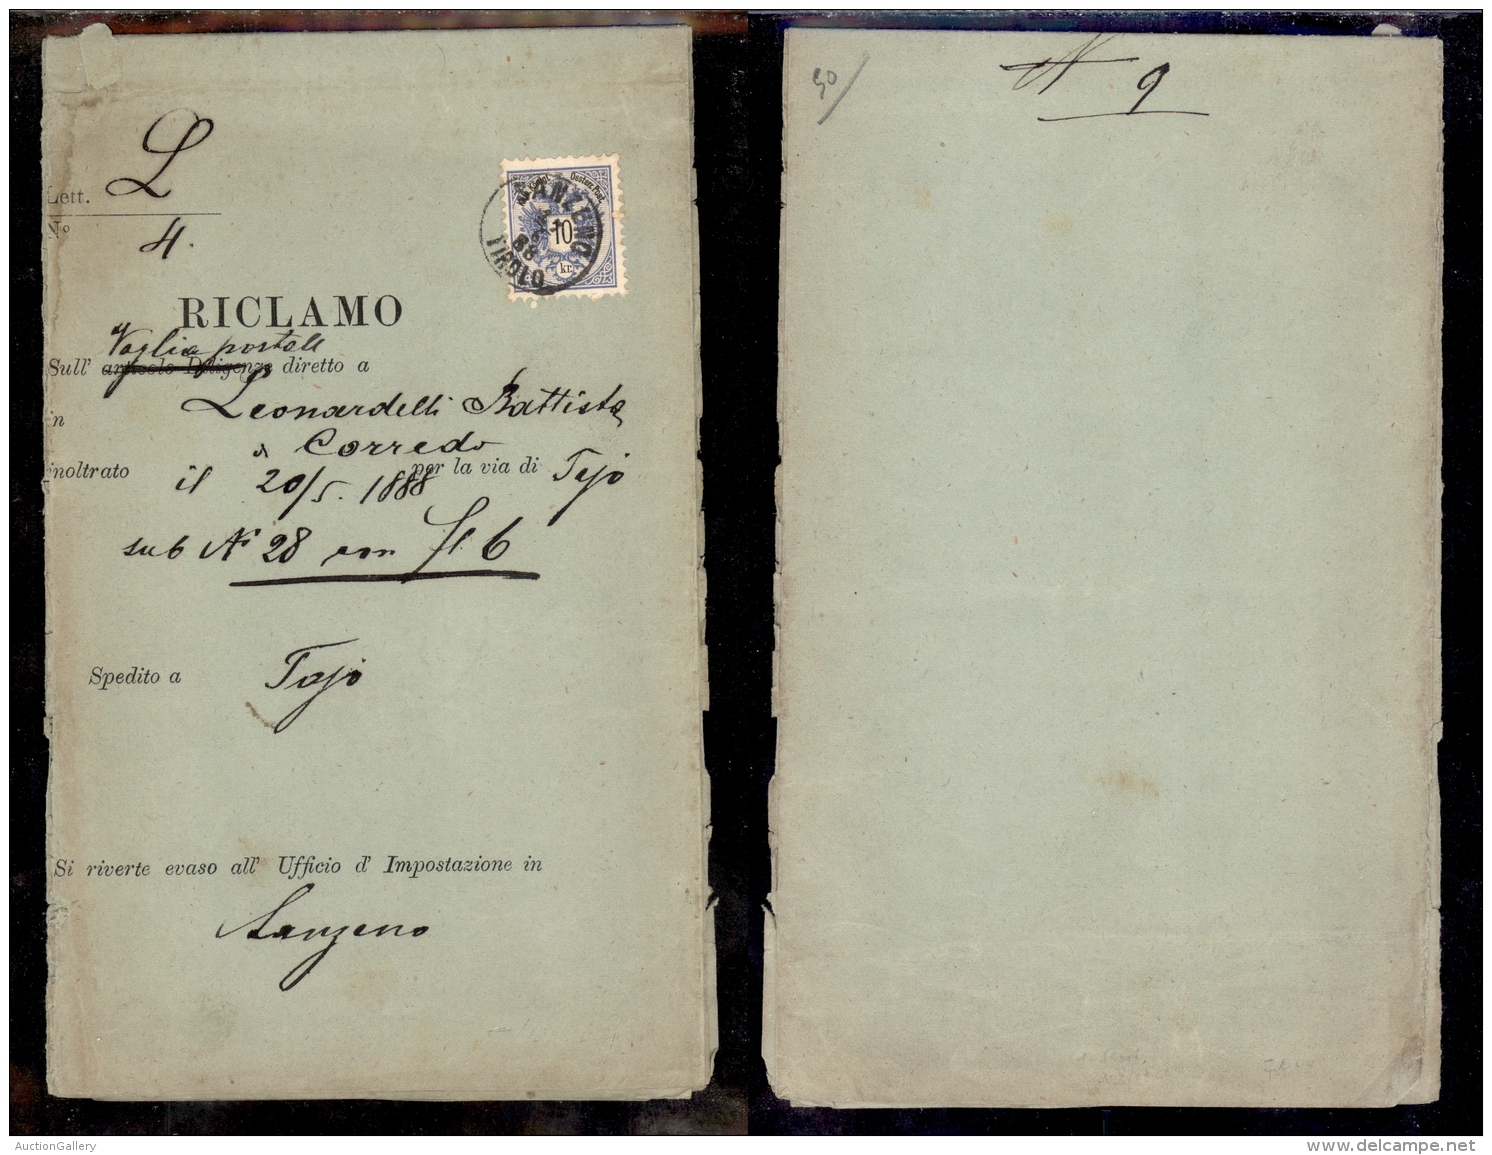 L
Lett.
No
4.
Oesterr. Post.
10
kr.
ANZENO
88
TIROLO
RICLAMO
Vaglia postale
Sull' articolo Diligenze diretto a
Leonardelli Battista
in
a Corredo
inoltrato il 20/5. 1888 per la via di Tajo
sub No 28 con fl 6
Spedito a Tajo
Si riverte evaso all' Ufficio d' Impostazione in
Sanzeno
50/
N 9
AuctionGallery
www.delcampe.net